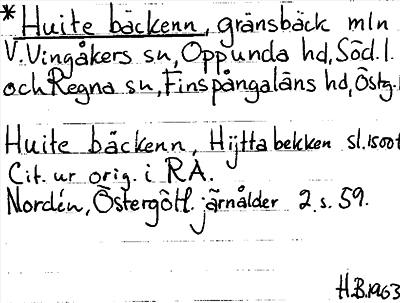 * Huite bäckenn, gränsbäck mln
V. Vingåkers sn, Oppunda hd, Söd. l.
och Regna sn, Finspångaläns hd, Östg. l
Huite bäckenn, Hijtta bekken sl. 1500t
Cit. ur orig. i RA.
Nordén, Östergötl. järnålder 2. s. 59.
H.B. 1963